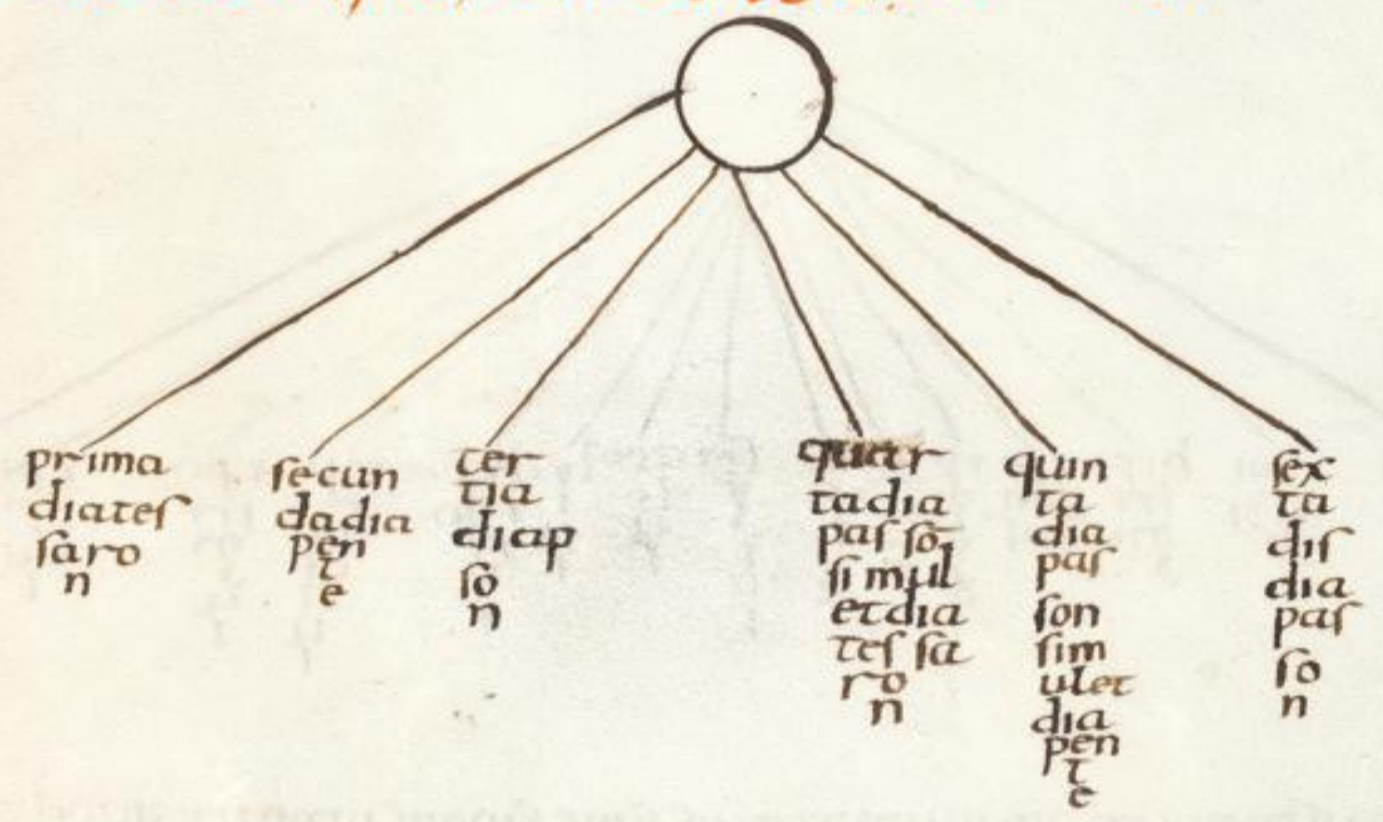 prima
diateſ
ſaro
n
ſecun
dadia
pen
t
e
ter
tia
diap
ſo
n
quar
tadia
paſ ſo̅
ſi mul
etdia
teſ ſa
ro
n
quin
ta
dia
paſ
ſon
ſim
ulet
dia
pen
t
e
ſex
ta
diſ
dia
paſ
ſo
n